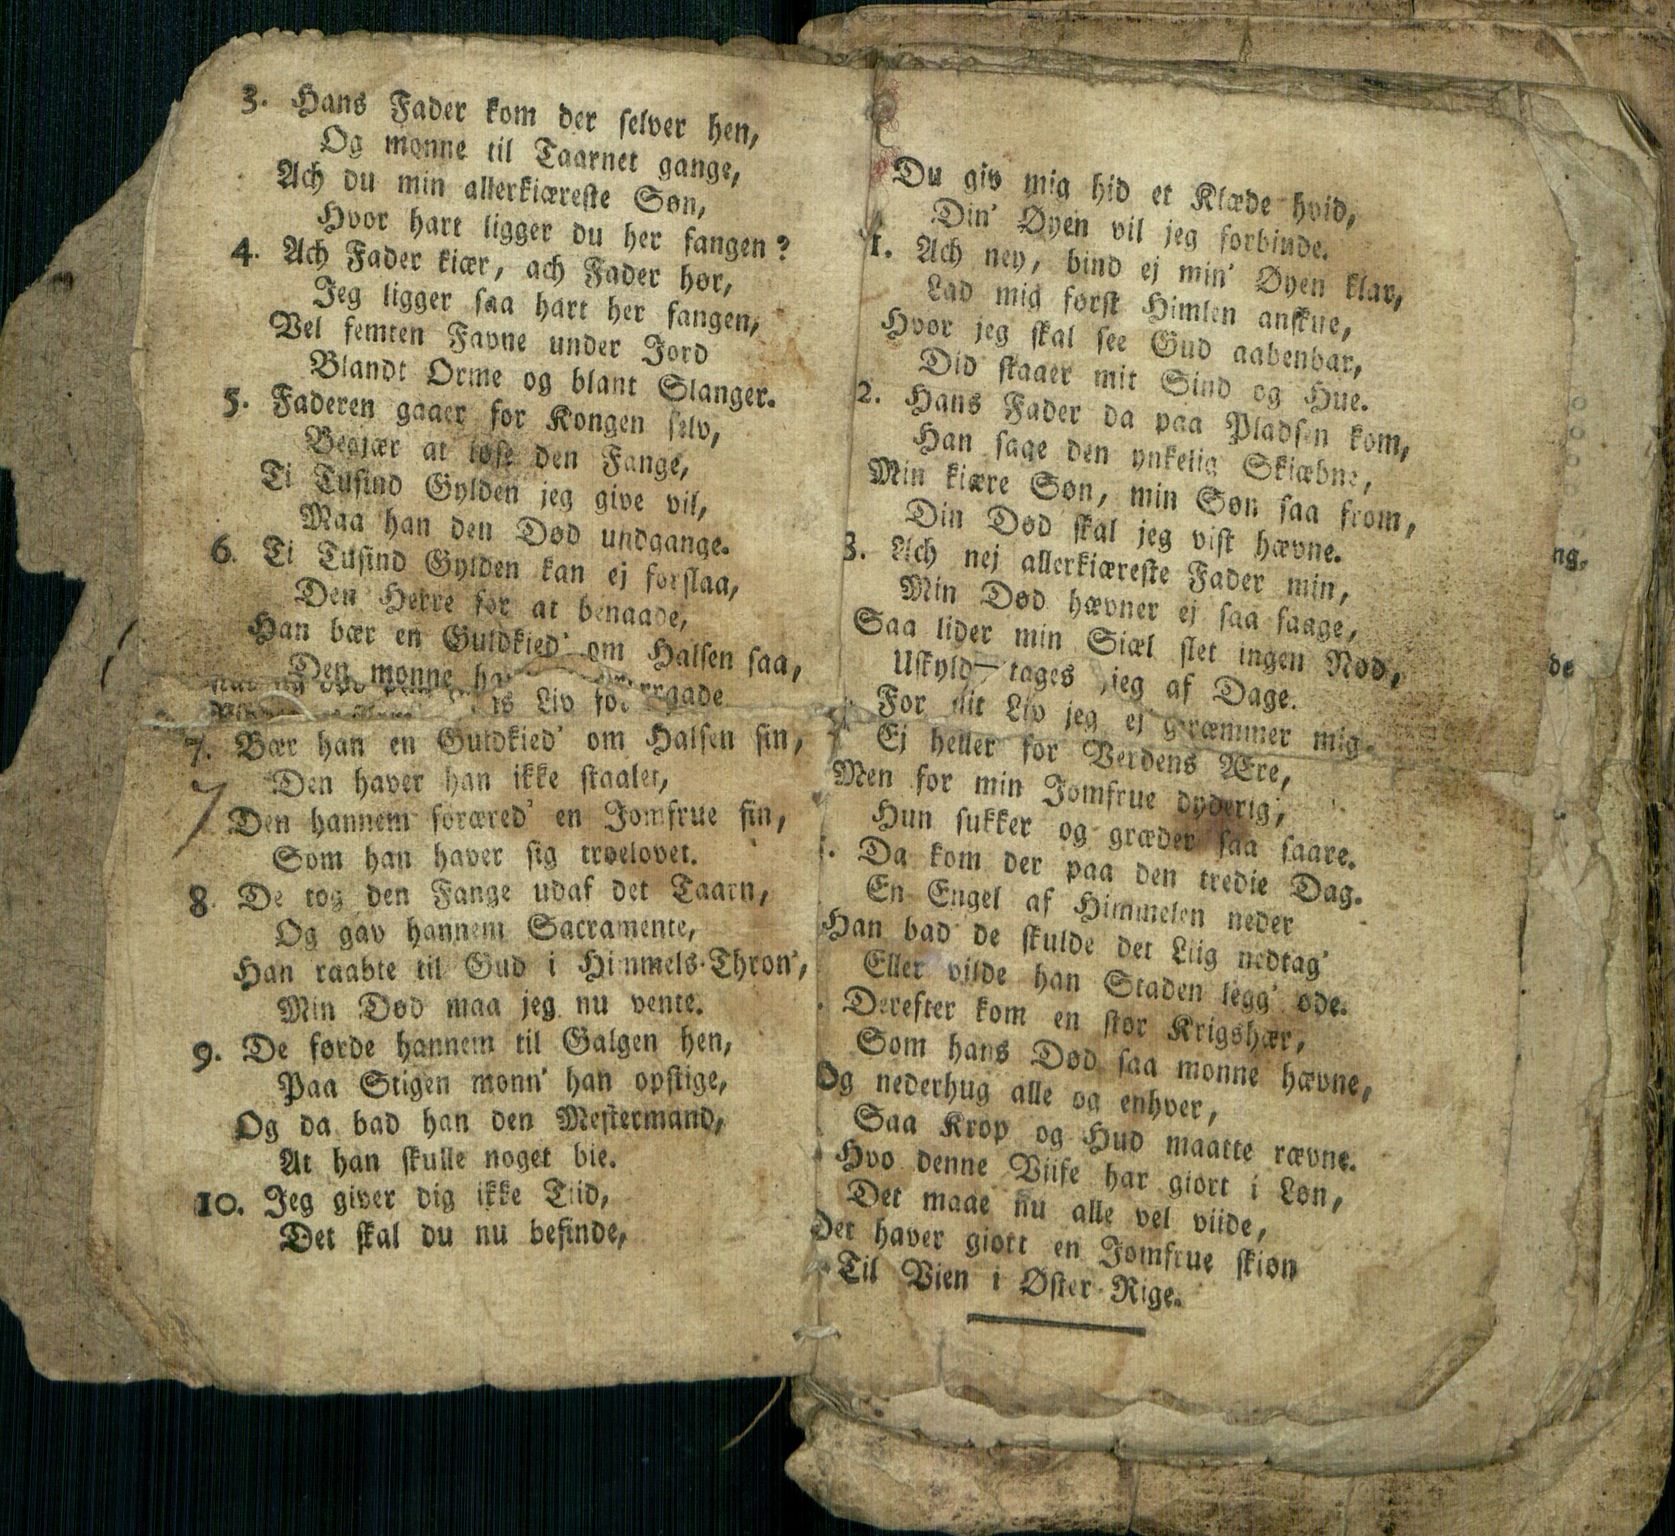 3. Hans Fader kom der selver hen,
Og monne til Taarnet gange,
Ach du min allerkiæreste Søn,
Hvor hart ligger du her fangen?
4. Ach Fader kiær, ach Fader hør,
Jeg ligger saa hart her fangen,
Vel femten Favne under Jord
Blandt Orme og blant Slanger.
5. Faderen gaaer for Kongen selv,
Begiær at løse den Fange,
Ti Tusind Gylden jeg give vil,
Maa han den Død undgange.
6. Ti Tusind Gylden kan ej forslaa,
Den Herre for at benaade,
Han bær en Guldkied' om Halsen saa,
Den monne
Liv
7. Bær han en Guldkied' om Halsen sin,
Den haver han ikke staalet,
Den hannem foræred' en Jomfrue sin,
Som han haver sig troelovet.
8. De tog den Fange udaf det Taarn,
Og gav hannem Sacramente,
Han raabte til Gud i Himmels-Thron',
Min Død maa jeg nu vente.
9. De førde hannem til Galgen hen,
Paa Stigen monn' han opstige,
Og da bad han den Mestermand,
At han skulle noget bie.
10. Jeg giver dig ikke Tiid,
Det skal du nu befinde,
Du giv mig hid et Klæde hvid,
Din' Øyen vil jeg forbinde.
1. Ach ney, bind ej min' Øyen klar,
Lad mig først Himlen anskue,
Hvor jeg skal see Gud aabenbar,
Did staaer mit Sind og Hue.
2. Hans Fader da paa Pladsen kom,
Han saae den ynkelig Skiæbne,
Min kiære Søn, min Søn saa from,
Din Død skal jeg vist hævne.
3. Ach nej allerkiæreste Fader min,
Min Død hævner ej saa saage,
Saa lider min Siæl slet ingen Nød,
Uskyld— tages jeg af Dage.
For mit Liv jeg ej græmmer mig
Ej heller for Verdens Ære,
Men for min Jomfrue dyderig,
Hun sukker og græder saa saare.
Da kom der paa den tredie Dag.
En Engel af Himmelen neder
Han bad de skulde det Liig nedtag'
Eller vilde han Staden legg' øde.
Derefter kom en stor Krigshær,
Som hans Død saa monne hævne,
Og nederhug alle og enhver,
Saa Krop og Hud maatte rævne.
Hvo denne Viise har giort i Løn,
Det maae nu alle vel viide,
Det haver giort en Jomfrue skiøn
Til Vien i Øster-Rige.
ng,
de